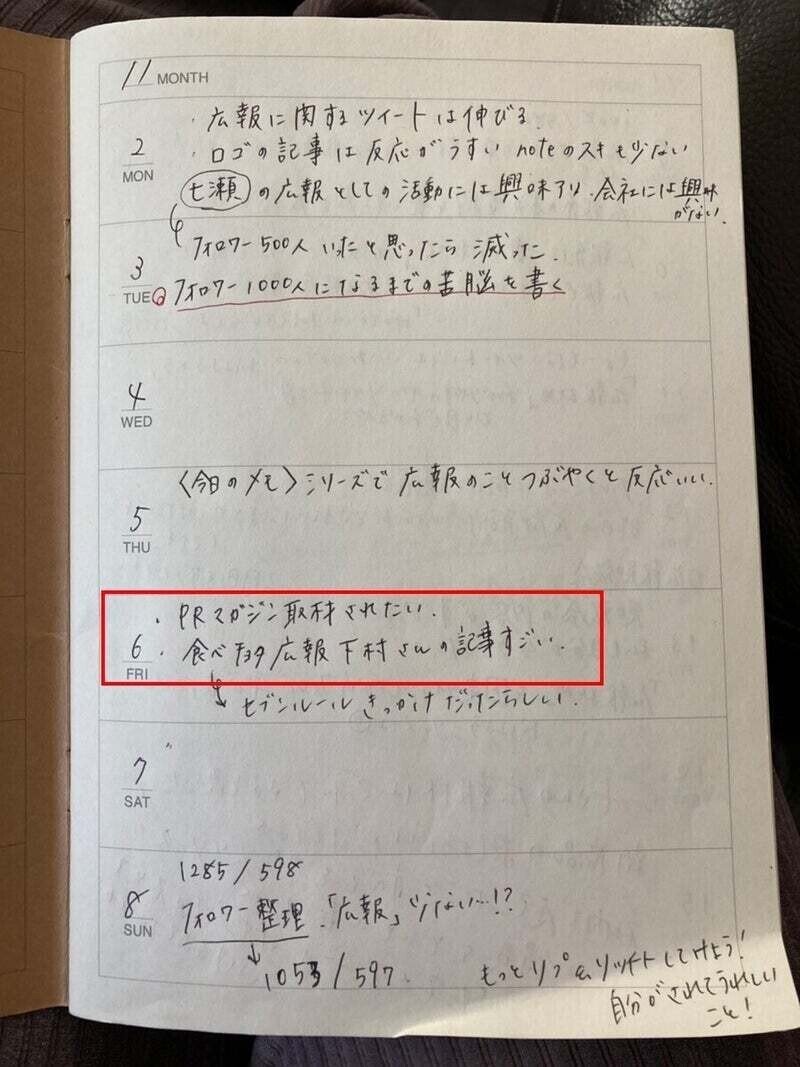 11 MONTH
・広報に関するツイートは伸びる.
2
・ロゴの記事は反応がうすい noteのスキも少ない
MON
七瀬の広報としての活動には興味アリ.会社には興味
がない.
フォロワー500人 いったと思ったら 減った.
3
TUE
フォロワー1000人になるまでの苦脳を書く
4
WED
〈今日のメモ〉シリーズで 広報のことつぶやくと反応いい.
5
THU
・PRマガジン取材されたい.
6
・食べチョク広報 下村さんの記事すごい.
FRI
↳ セブンルール きっかけだったらしい.
7
SAT
1285/598
8
フォロワー整理.「広報」少ない…!?
SUN
↓
1053/597.
もっとリプ&リツイートしてけよう!
自分がされてうれしい
こと!